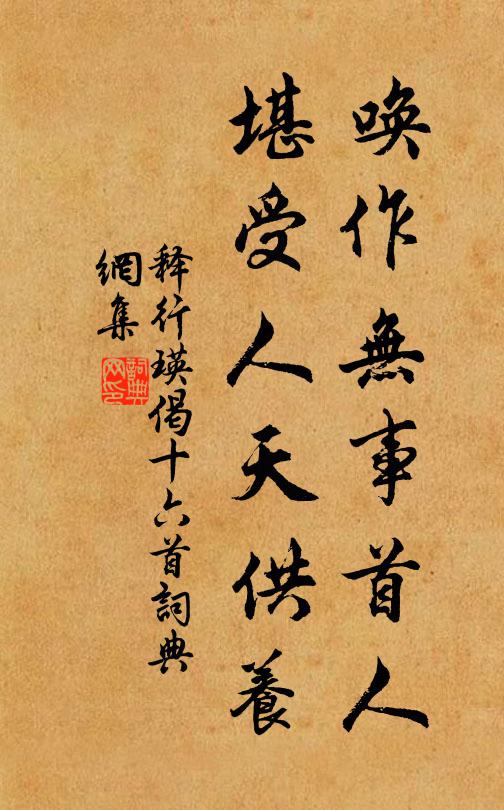 喚作無事首人
堪受人天供養
释行瑛偈十六首詞典
網集
詞典
网印